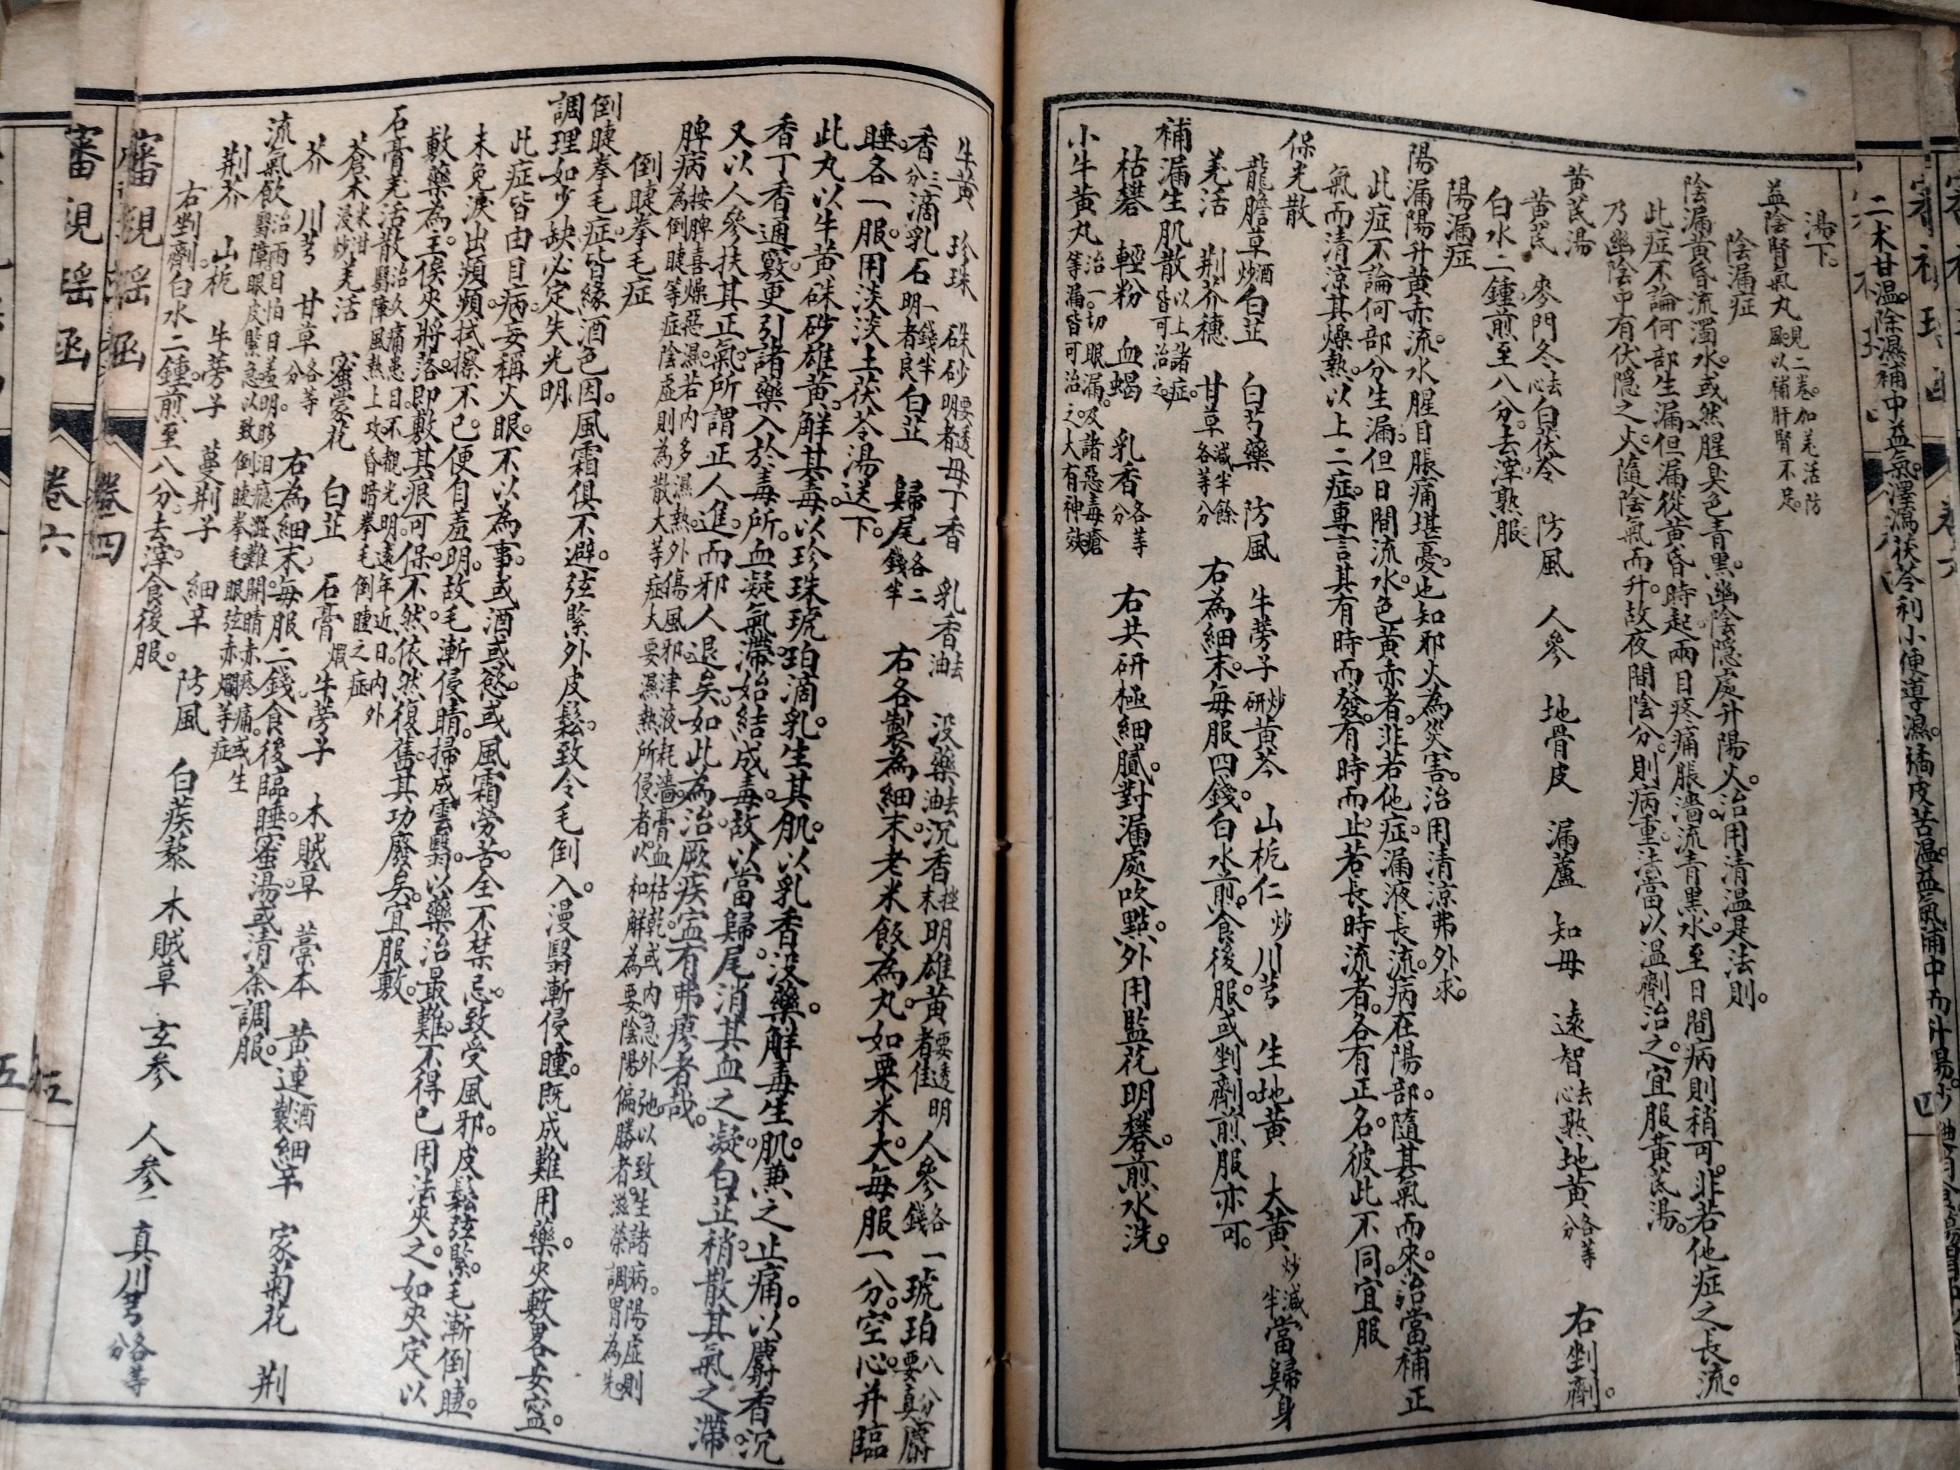 湯下。
益陰腎氣丸 見二卷。加羌活防風。以補肝腎不足。
陰漏症
陰漏黃昏流濁水。或然腥臭色青黑。幽陰隱處升陽火。治用清溫是法則。
此症不論何部生漏。但漏從黃昏時起。兩目疼痛脹濇。流青黑水。至日間病則稍可。非若他症之長流。
乃幽陰中有伏隱之火。隨陰氣而升。故夜間陰分。則病重。法當以溫劑治之。宜服黃芪湯。
黃芪湯
黃芪 麥門冬去心 白茯苓 防風 人參 地骨皮 漏蘆 知母 遠智去心 熟地黃各等分 右剉劑。
白水二鍾。煎至八分。去滓熱服。
陽漏症
陽漏陽升黃赤流。水腥目脹痛堪憂。也知邪火為災害。治用清涼弗外求。
此症不論何部分生漏。但日間流水。色黃赤者。非若他症漏液長流。病在陽部。隨其氣而來。治當補正
氣而清涼其燥熱。以上二症。專言其有時而發。有時而止。若長時流者。各有正名。彼此不同。宜服
保光散
龍膽草酒炒 白芷 白芍藥 防風 牛蒡子炒研 黃芩 山梔仁炒 川芎 生地黃 大黃炒減半 當歸身
羌活 荆芥穗 甘草減半餘各等分 右為細末。每服四錢。白水煎。食後服。或剉劑煎服亦可。
補漏生肌散 以上諸症。皆可治之。
枯礬 輕粉 血蝎 乳香各等分 右共研極細膩。對漏處吹點。外用監花明礬。煎水洗。
小牛黃丸 治一切眼漏。及諸惡毒瘡等漏。皆可治之。大有神效
牛黃 珍珠 硃砂要透明者 母丁香 乳香去油 沒藥去油 沉香挫末 明雄黃要透明者佳 人參各一錢 琥珀八分要真 麝
香三分 滴乳石一錢半明者良 白芷 歸尾各二錢半 右各製為細末。老米飲為丸。如粟米大。每服一分。空心并臨
睡。各一服。用淡淡土茯苓湯送下。
此丸以牛黃硃砂雄黃。解其毒。以珍珠琥珀滴乳。生其肌。以乳香沒藥。解毒生肌。兼之止痛。以麝香沉
香丁香。通竅更引諸藥入於毒所。血凝氣滯。始結成毒。故以當歸尾。消其血之凝。白芷稍散其氣之滯
又以人參扶其正氣。所謂正人進。而邪人退矣。如此為治。厥疾寍有弗瘳者哉。
脾病 按脾喜燥惡濕。若內多濕熱。外傷風邪。津液耗濇。膏血枯乾。或內急外弛。以致生諸病。陽虛則為倒睫等症。陰虛則為散大等症。大要濕熱所侵者。以和解為要。陰陽偏勝者。滋榮調胃為先。
倒睫拳毛症
倒睫拳毛症。皆緣酒色因。風霜俱不避。弦緊外皮鬆。致令毛倒入。漫翳漸侵瞳。既成難用藥。夾敷畧安寍。
調理如少缺。必定失光明。
此症皆由目病。妄稱火眼。不以為事。或酒。或慾。或風霜勞苦。全不禁忌。致受風邪。皮鬆弦緊。毛漸倒睫。
未免淚出頻頻。拭擦不已。便自羞明。故毛漸侵睛。掃成雲翳。以藥治最難。不得已用法夾之。如夾定。以
敷藥為主。俟夾將落。即敷其痕可保。不然。依然復舊。其功廢矣。宜服敷。
石膏羌活散 治久患目。不覩光明。遠年近日。內外翳障。風熱上攻。昏暗。拳毛倒睫之症。
蒼朮米泔浸炒 羌活 密蒙花 白芷 石膏煆 牛蒡子 木賊草 藁本 黃連酒製 細辛 家菊花 荆
芥 川芎 甘草各等分 右為細末。每服二錢。食後臨睡。蜜湯或清茶調服。
流氣飲 治兩目怕日羞明。眵淚癮澀。難開睛赤疼痛。或生翳障。眼皮緊急。以致倒睫拳毛。眼弦赤爛等症
荆芥 山梔 牛蒡子 蔓荆子 細辛 防風 白蒺藜 木賊草 玄參 人參 真川芎各等分
右剉劑。白水二鍾。煎至八分。去滓食後服。
審視瑤函 卷四
審視瑤函 卷六